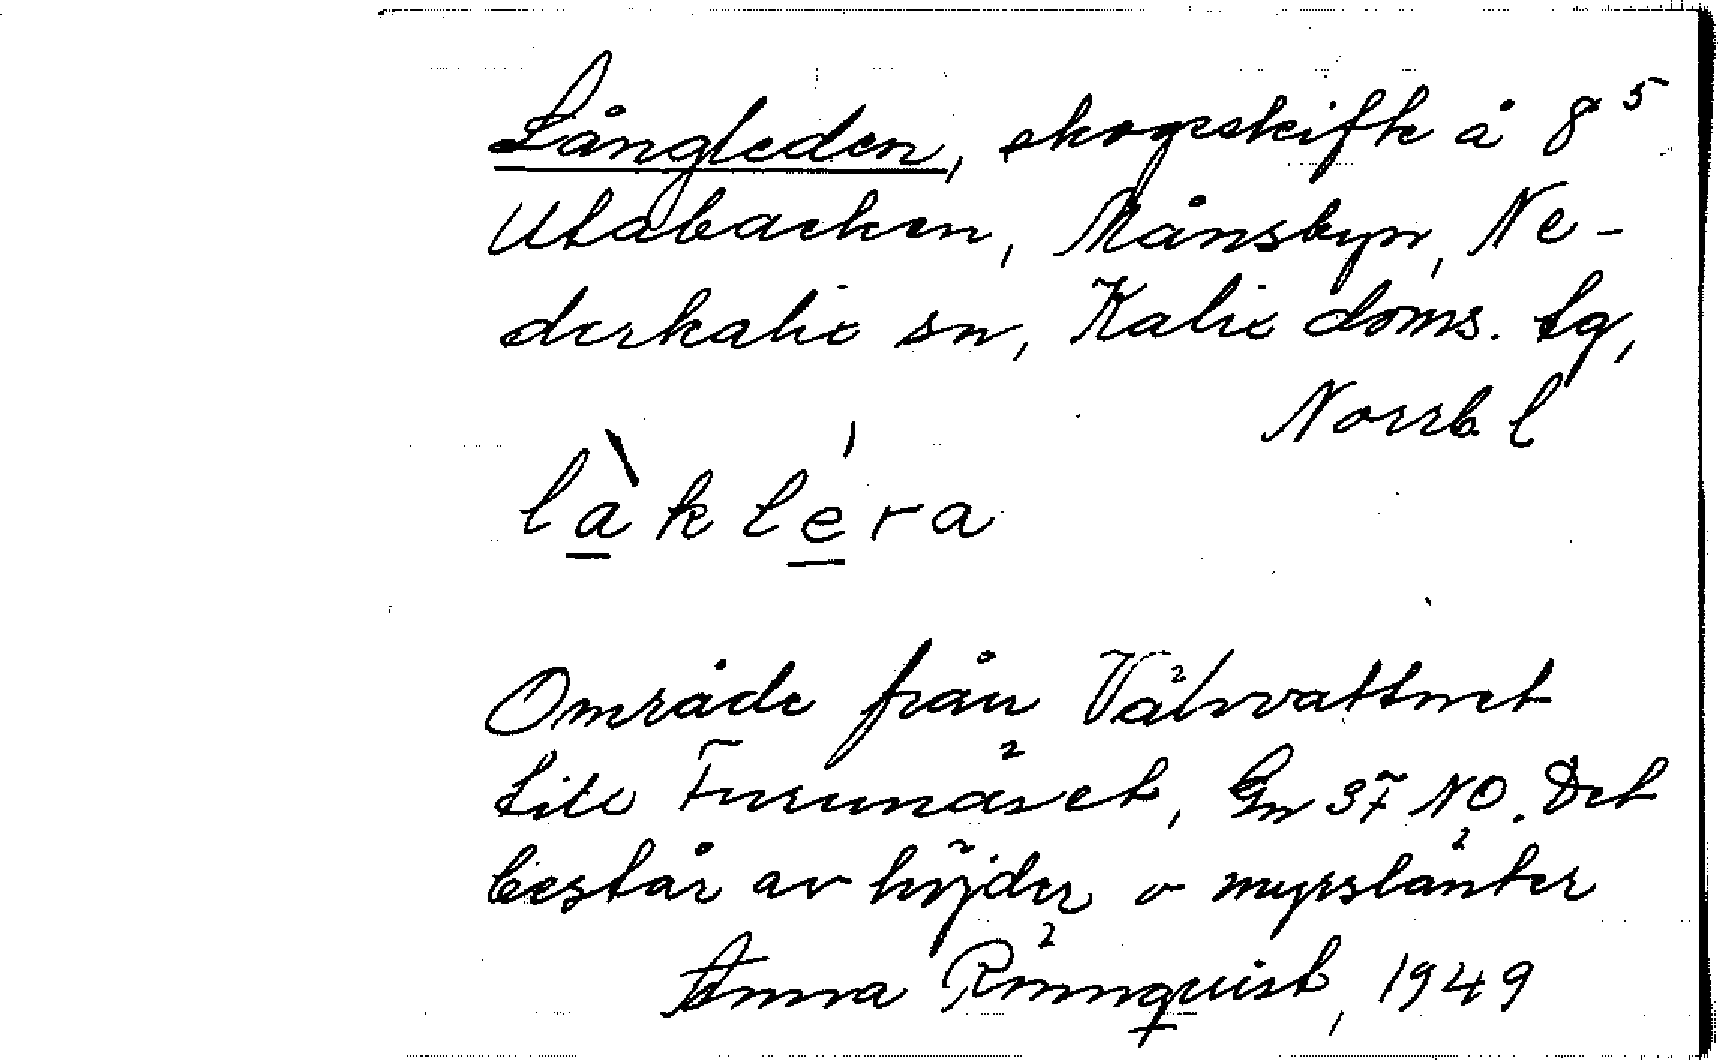 Långleden, skogsskifte å 8⁵
Utabacken, Månsbyn, Ne-
derkalix sn, Kalix doms. tg,
Norrb l
làkléra
Område från Vähvattnet
till Furunäset, Gn 37 NO. Det
består av höjder o myrslänter
Anna Rönnquist, 1949